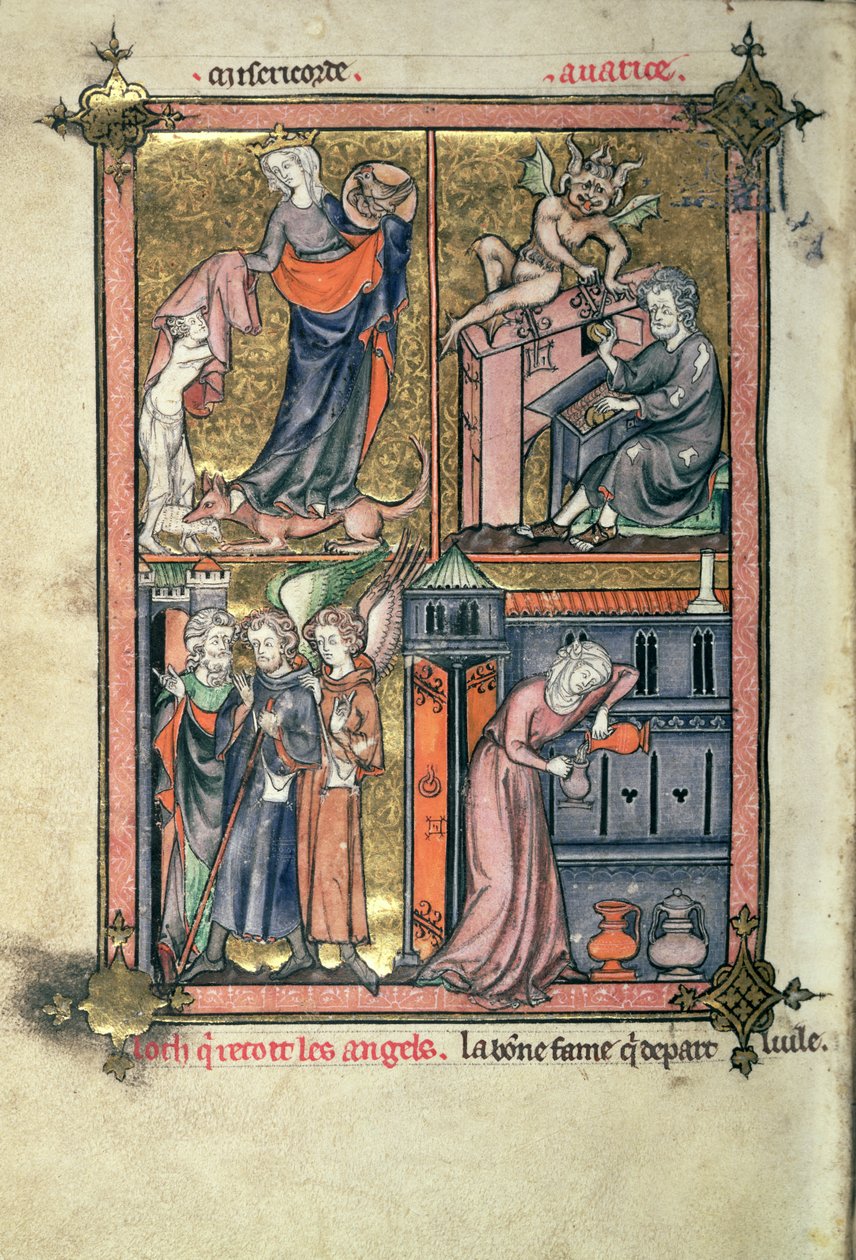 · misericorde ·
· auarice ·
loth q̄ recoit les angels.
la bōne fame q̄ depart luile.